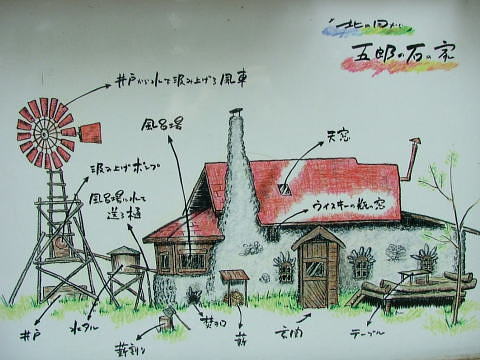 「北の国から」
五郎の石の家
井戸から水を汲み上げる風車
風呂場
天窓
汲み上げポンプ
風呂場に水を
送る樋
ウイスキーの枕の窓
井戸
水タル
薪割り
焚き口
薪
玄関
テーブル